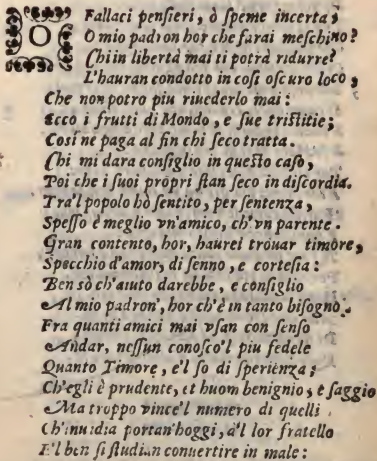 O Fallaci pensieri, ò speme incerta;
O mio padron hor che farai meschino?
Chi in libertà mai ti potrà ridurre?
L'hauran condotto in cosi oscuro loco,
Che non potro piu riuederlo mai:
Ecco i frutti di Mondo, e sue tristitie;
Cosi ne paga al fin chi seco tratta.
Chi mi dara consiglio in questo caso,
Poi che i suoi propri stan seco in discordia.
Tra'l popolo hò sentito, per sentenza,
Spesso è meglio vn'amico, ch'vn parente.
Gran contento, hor, haurei trouar timore,
Specchio d'amor, di senno, e cortesia:
Ben sò ch'aiuto darebbe, e consiglio
Al mio padron', hor ch'è in tanto bisogno.
Fra quanti amici mai vsan con senso
Andar, nessun conosco'l piu fedele
Quanto Timore, e'l so di sperienza;
Ch'egli è prudente, et huom benignio, e saggio
Ma troppo vince'l numero di quelli
Ch'inuidia portan'hoggi, a'l lor fratello
E'l ben si studian conuertire in male: